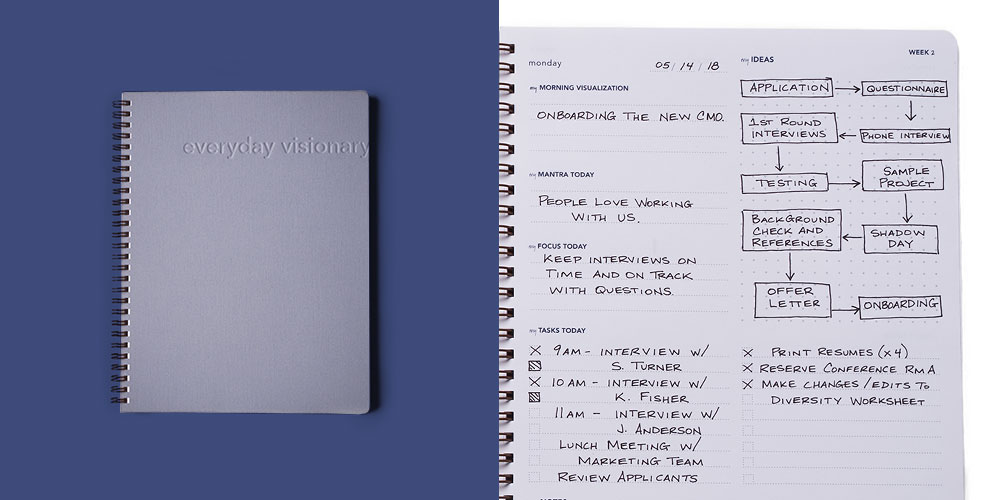 everyday visionary
WEEK 2
monday
05 / 14 / 18
my MORNING VISUALIZATION
ONBOARDING THE NEW CMO.
my MANTRA TODAY
PEOPLE LOVE WORKING
WITH US.
my FOCUS TODAY
KEEP INTERVIEWS ON
TIME AND ON TRACK
WITH QUESTIONS.
my IDEAS
APPLICATION
QUESTIONNAIRE
PHONE INTERVIEW
1ST ROUND
INTERVIEWS
TESTING
SAMPLE
PROJECT
SHADOW
DAY
BACKGROUND
CHECK AND
REFERENCES
OFFER
LETTER
ONBOARDING
my TASKS TODAY
9AM - INTERVIEW W/
S. TURNER
10AM - INTERVIEW W/
K. FISHER
11AM - INTERVIEW W/
J. ANDERSON
LUNCH MEETING W/
MARKETING TEAM
REVIEW APPLICANTS
PRINT RESUMES (x4)
RESERVE CONFERENCE RM A
MAKE CHANGES/EDITS TO
DIVERSITY WORKSHEET